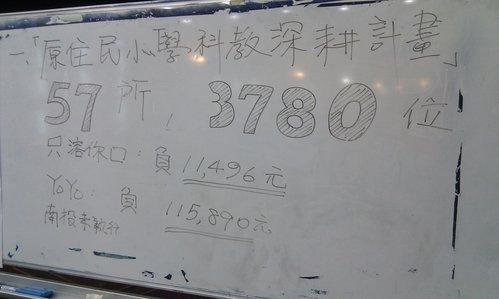 一、「原住民小學科教深耕計畫」
57所, 3780位
只溶你口：負 11,496元
YoYo：負 115,890元
南投未執行